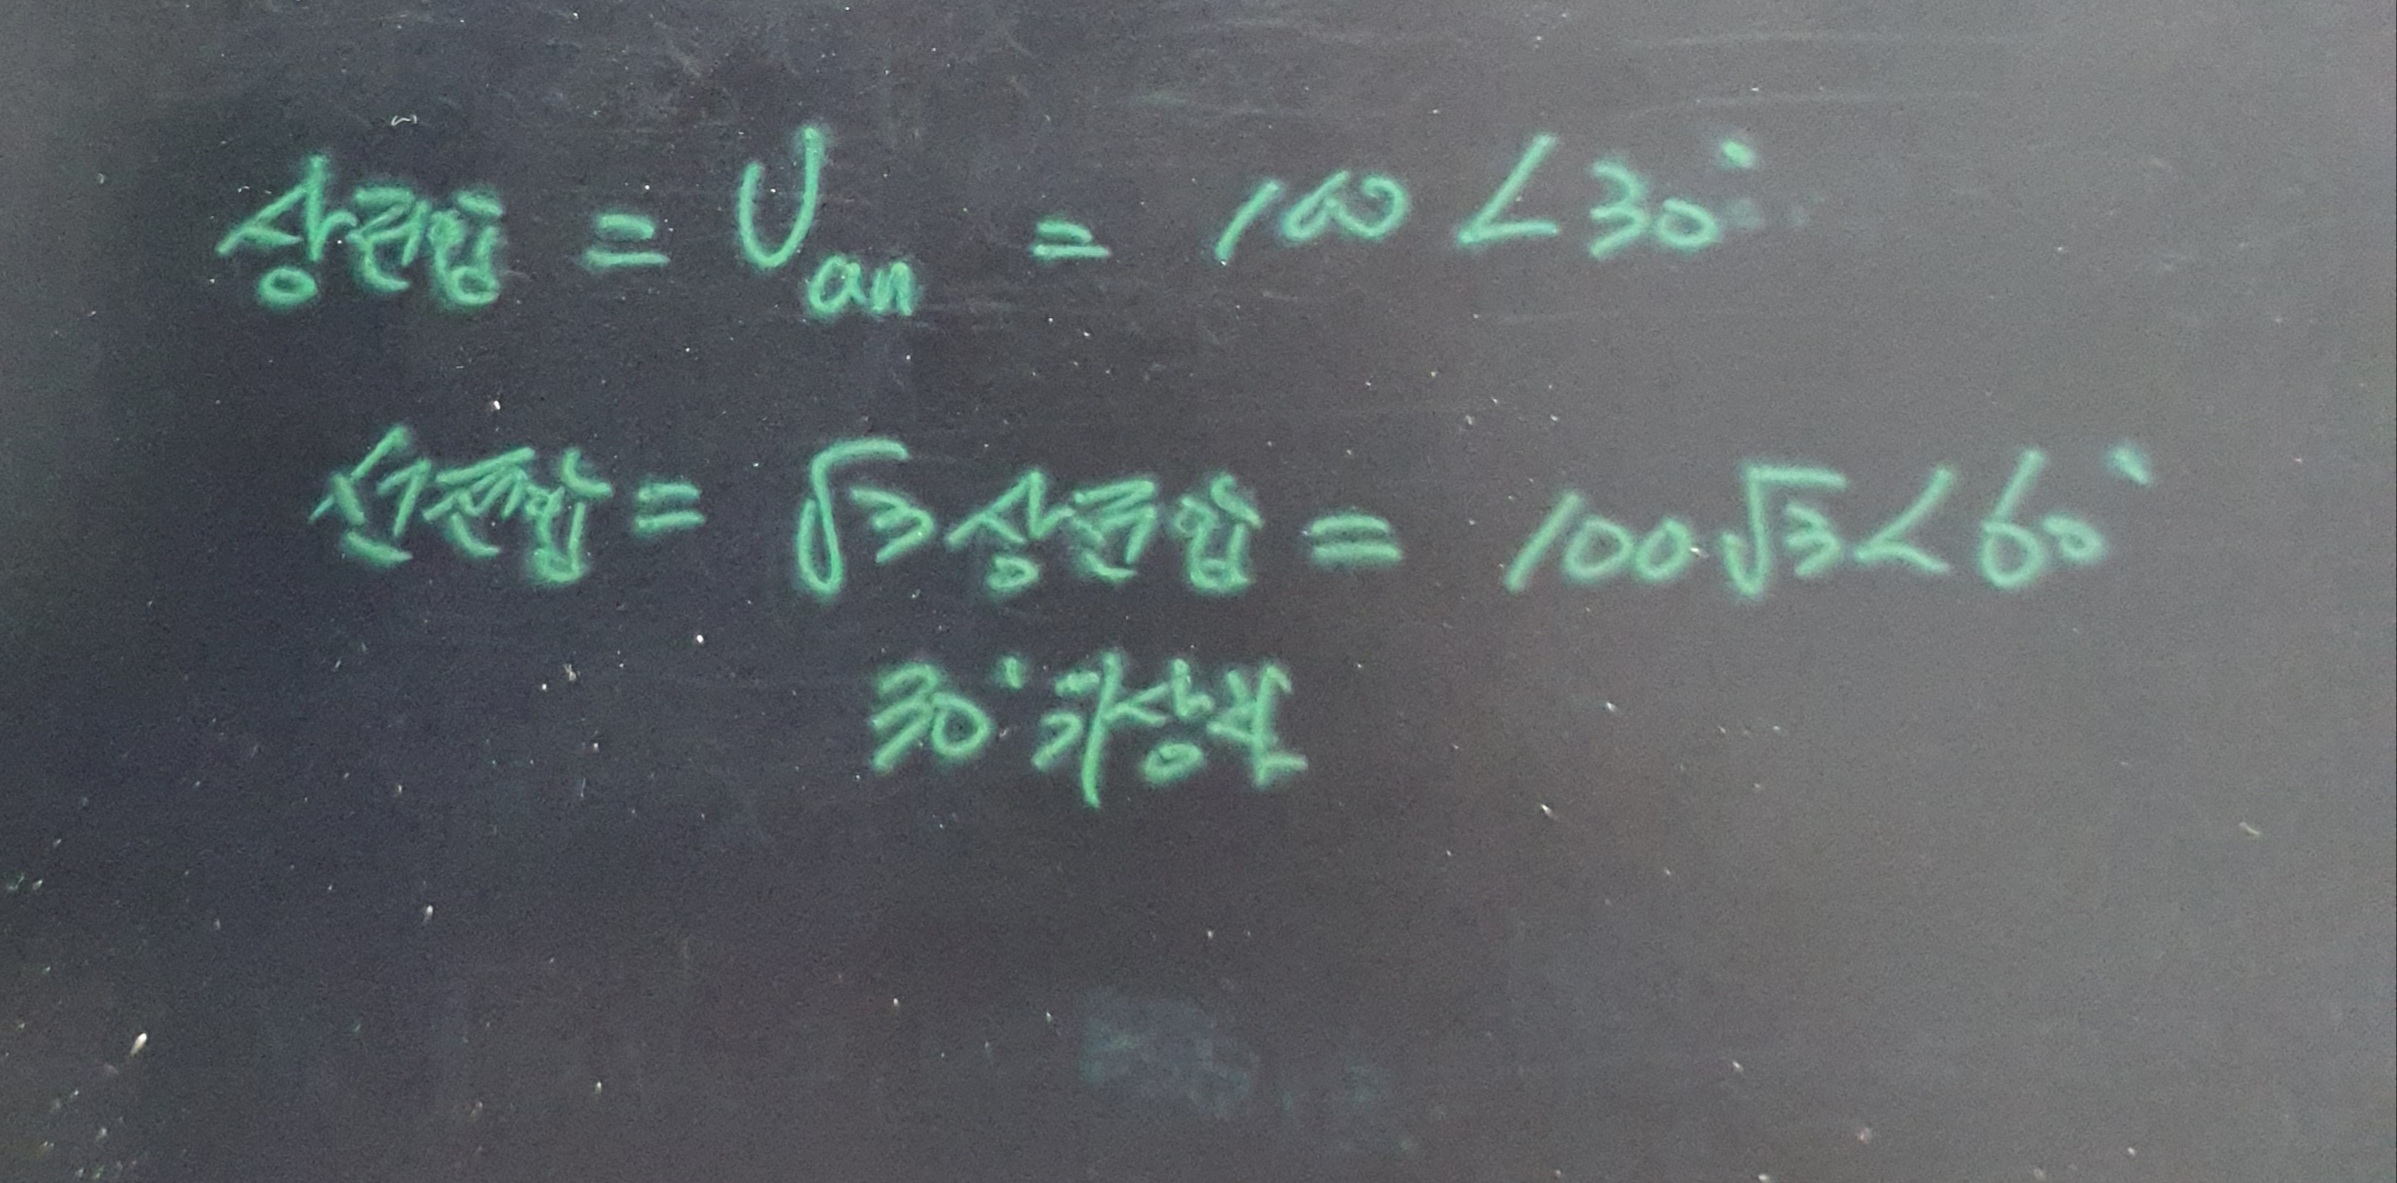 상전압 = Van = 100 ∠30°
선전압 = √3 상전압 = 100√3 ∠60°
30° 위상차